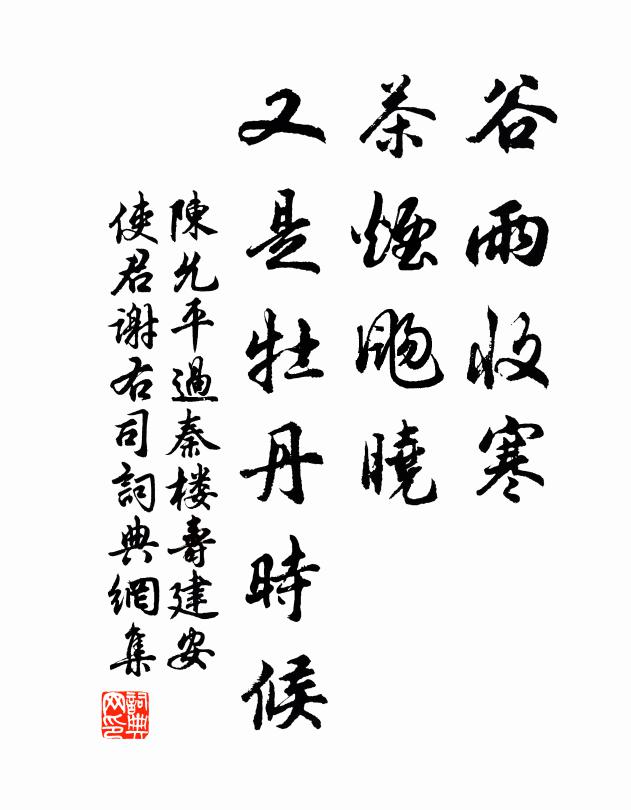 谷雨收寒
茶煙颺曉
又是牡丹時候
陳允平過秦楼壽建安
使君謝右司詞典網集
詞典
网印